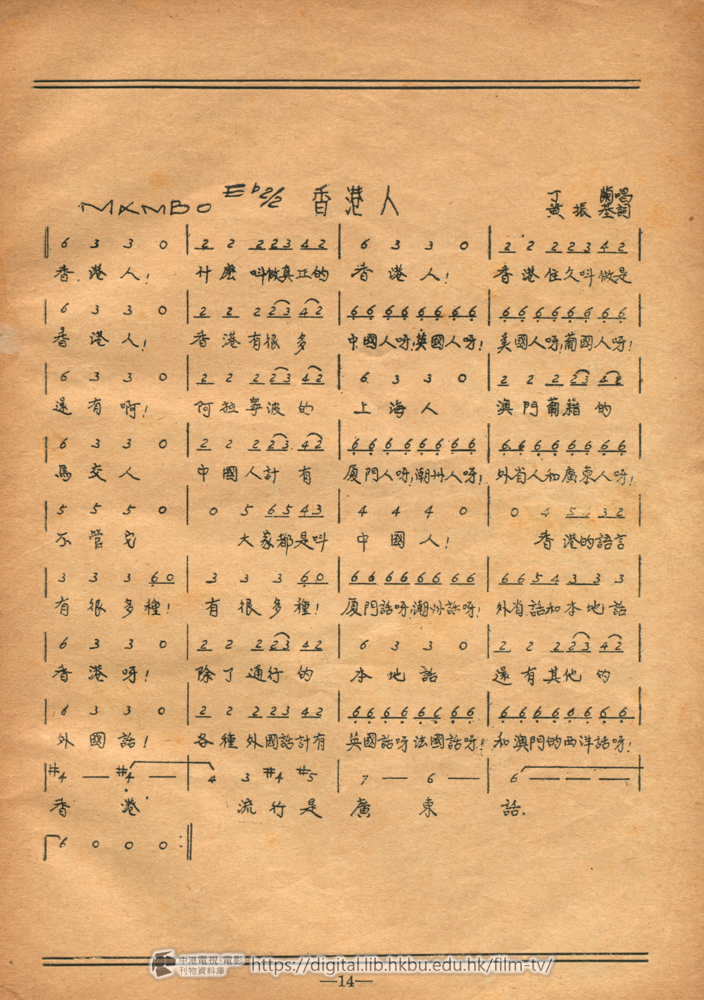 MAMBO E♭ 2/2 香港人 丁蘭唱
黄振基詞
6 3 3 0 | 2 2 223 42 | 6 3 3 0 | 2 2 223 42
香港人! 什麽叫做真正的 香港人! 香港住久叫做是
6 3 3 0 | 2 2 223 42 | 66 66 66 66 | 66 66 66 66
香港人! 香港有很多 中國人呀,英國人呀! 美國人呀,葡國人呀!
6 3 3 0 | 2 2 223 42 | 6 3 3 0 | 2 2 223 42
還有啊! 阿拉寧波的 上海人 澳門葡籍的
6 3 3 0 | 2 2 223 42 | 66 66 66 66 | 66 66 66 66
馬交人 中國人計有 厦門人呀,潮州人呀! 外省人和廣東人呀!
5 5 5 0 | 0 5 65 43 | 4 4 4 0 | 0 4 5 32
不管它 大家都是叫 中國人! 香港的語言
3 3 3 60 | 3 3 3 60 | 66 66 66 66 | 6654 3 3 3
有很多種! 有很多種! 厦門話呀,潮州話呀! 外省話和本地話
6 3 3 0 | 2 2 223 42 | 6 3 3 0 | 2 2 223 42
香港呀! 除了通行的 本地話 還有其他的
6 3 3 0 | 2 2 223 42 | 66 66 66 66 | 66 66 66 66
外國話! 各種外國話計有 英國話呀法國話呀! 和澳門的西洋話呀!
#4 — #4 — | 4 3 #4 #5 | 7 — 6 — | 6 — — —
香港 流行是廣東話.
6 0 0 0 :‖
中港電視·電影
刊物資料庫
https://digital.lib.hkbu.edu.hk/film-tv/
—14—